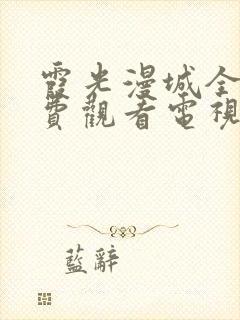 霞光漫城全
費觀看電視
藍辭